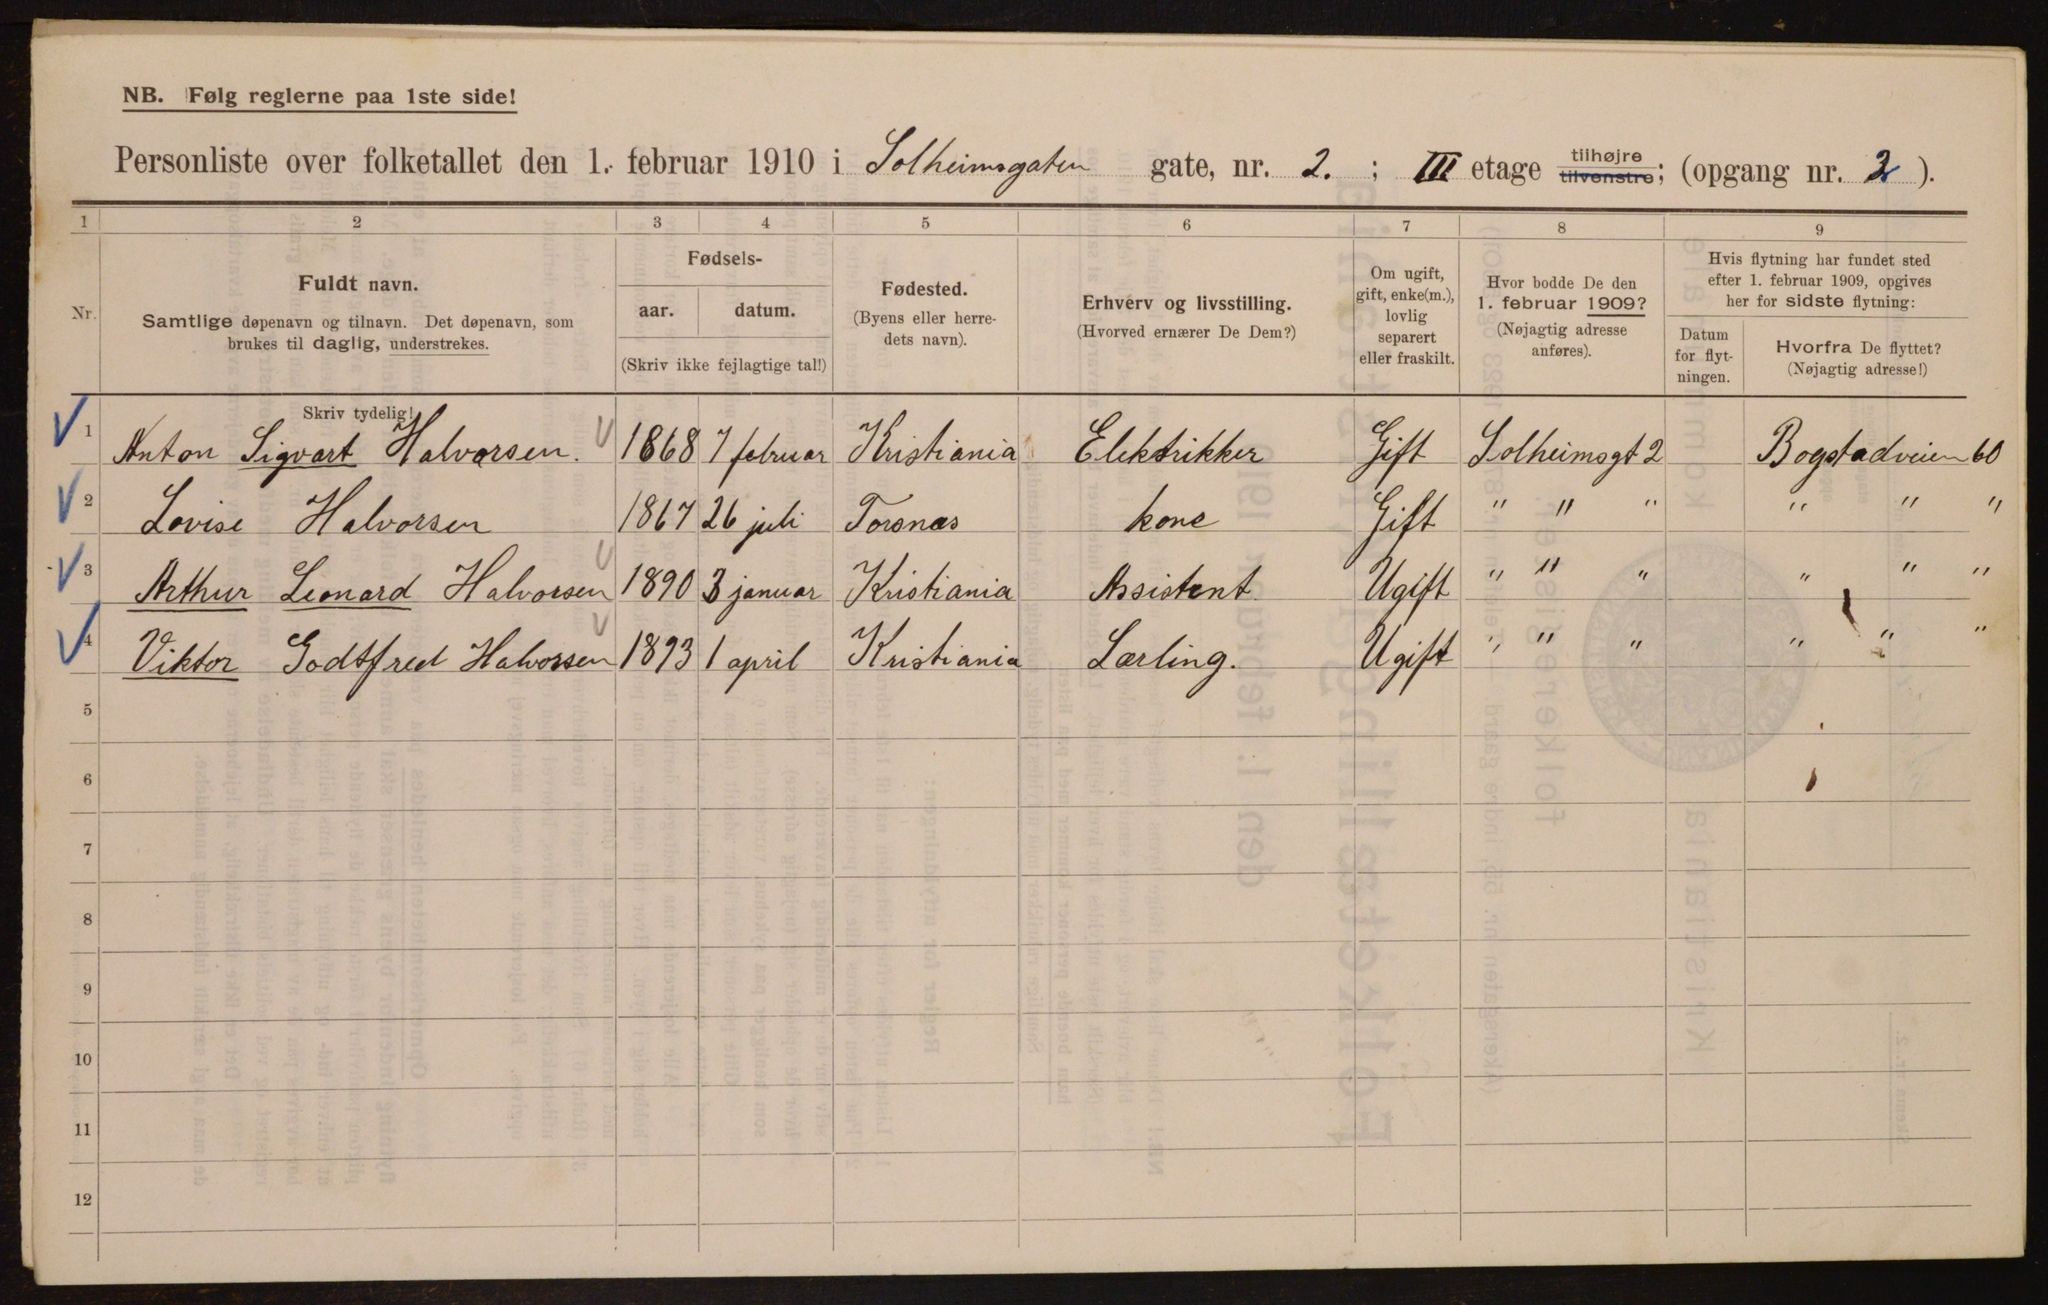 NB. Følg reglerne paa 1ste side!
Personliste over folketallet den 1. februar 1910 i Solheimsgaten gate, nr. 2. ; III etage tilhøjre tilvenstre; (opgang nr. 2 ).
1 2 3 4 5 6 7 8 9
Nr.
Fuldt navn.
Samtlige døpenavn og tilnavn. Det døpenavn, som
brukes til daglig, understrekes.
Fødsels-
aar. datum.
(Skriv ikke fejlagtige tal!)
Fødested.
(Byens eller herre-
dets navn).
Erhverv og livsstilling.
(Hvorved ernærer De Dem?)
Om ugift,
gift, enke(m.),
lovlig
separert
eller fraskilt.
Hvor bodde De den
1. februar 1909?
(Nøjagtig adresse
anføres).
Hvis flytning har fundet sted
efter 1. februar 1909, opgives
her for sidste flytning:
Datum
for flyt-
ningen.
Hvorfra De flyttet?
(Nøjagtig adresse!)
Skriv tydelig!
1 Anton Sigvart Halvorsen. 1868 7 februar Kristiania Elektrikker Gift Solheimsgt 2 Bogstadveien 60
2 Lovise Halvorsen 1867 26 juli Torsnæs kone Gift " " " " " "
3 Arthur Leonard Halvorsen 1890 3 januar Kristiania Assistent Ugift " " " " " "
4 Viktor Godtfred Halvorsen 1893 1 april Kristiania Lærling. Ugift " " " " " "
5
6
7
8
9
10
11
12